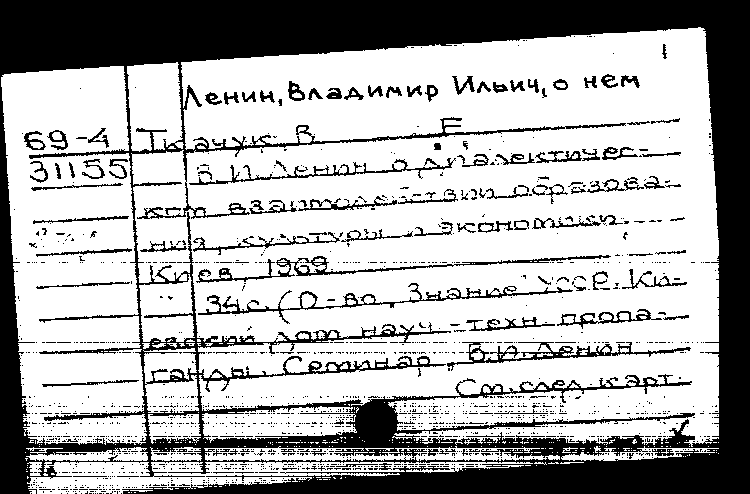 1
Ленин, Владимир Ильич, о нем
69-4 Ткачук, В. Е.
31155 В.И. Ленин о диалектичес-
ком взаимодействии образова-
ния, культуры и экономики.
Киев, 1969
34с. (О-во „Знание" УССР. Ки-
евский дом науч-техн. пропа-
ганды. Семинар „В.И. Ленин
См. след. карт.
16